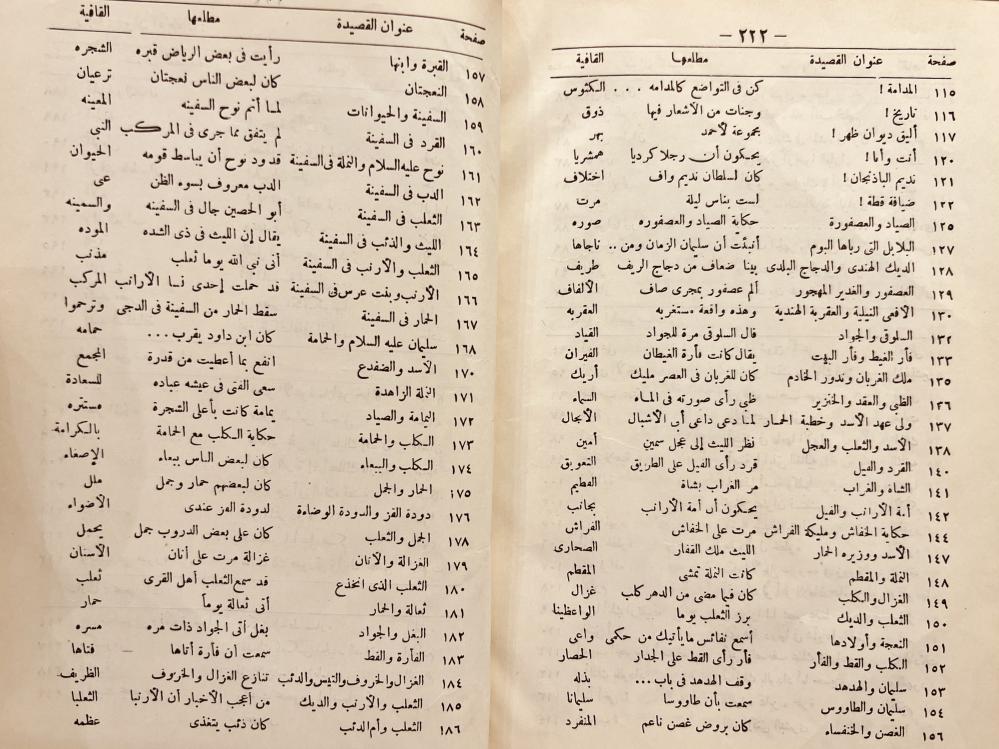 — ٢٢٢ —
صفحة عنوان القصيدة مطلعها القافية
١١٥ المدامة ! كن فى التواضع كالمدامه . . . . الكئوس
١١٦ تاريخ ! وجنات من الأشعار فيها ذوق
١١٧ أليق ديوان ظهر ! مجموعة لأحمد بهر
١٢٠ أنت وأنا ! يحكون أن رجلا كرديا همشريا
١٢١ نديم الباذنجان ! كان لسلطان نديم واف اختلاف
١٢٢ ضيافة قطة ! لست بناس ليلة مرت
١٢٥ الصياد والعصفورة حكاية الصياد والعصفوره صوره
١٢٧ البلابل التى رباها البوم أنبئت أن سليمان الزمان ومن . . ناجاها
١٢٨ الديك الهندى والدجاج البلدى بينا ضعاف من دجاج الريف طريف
١٢٩ العصفور والغدير المهجور ألم عصفور بمجرى صاف الألفاف
١٣٠ الأفعى النيلية والعقربة الهندية وهذه واقعة مستغربه العقربه
١٣٢ السلوقى والجواد قال السلوقى مرة للجواد القياد
١٣٣ فأر الغيط وفأر البيت يقال كانت فأرة الغيطان الفيران
١٣٥ ملك الغربان وندور الخادم كان للغربان فى العصر مليك أريك
١٣٦ الظبى والعقد والخنزير ظبى رأى صورته فى الماء السماء
١٣٧ ولى عهد الأسد وخطبة الحمار لما دعى داعى أبى الأشبال الأنجال
١٣٨ الأسد والثعلب والعجل نظر الليث إلى عجل سمين أمين
١٤٠ القرد والفيل قرد رأى الفيل على الطريق التعويق
١٤١ الشاة والغراب مر الغراب بشاة الفطيم
١٤٢ أمة الأرانب والفيل يحكون أن أمة الأرانب بجانب
١٤٤ حكاية الخفاش ومليكة الفراش مرت على الخفاش الفراش
١٤٧ الأسد ووزيره الحمار الليث ملك القفار الصحارى
١٤٨ النملة والمقطم كانت النملة تمشى المقطم
١٤٩ الغزال والكلب كان فيما مضى من الدهر كلب غزال
١٥٠ الثعلب والديك برز الثعلب يوما الواعظينا
١٥١ النعجة وأولادها أسمع نفائس مايأتيك من حكمى واعى
١٥٢ الكلب والقط والفأر فأر رأى القط على الجدار الحصار
١٥٣ سليمان والهدهد وقف الهدهد فى باب . . . بذله
١٥٤ سليمان والطاووس سمعت بأن طاووسا سليمانا
١٥٦ الغصن والخنفساء كان بروض غصن ناعم المنفرد
صفحة عنوان القصيدة مطلعها القافية
١٥٧ القبرة وابنها رأيت فى بعض الرياض قبره الشجره
١٥٨ النعجتان كان لبعض الناس نعجتان ترعيان
١٥٩ السفينة والحيوانات لما أتم نوح السفينه المعينه
١٦٠ القرد فى السفينة لم يتفق مما جرى فى المركب النبى
١٦١ نوح عليه السلام والنملة فى السفينة قدود نوح أن يباسط قومه الحيوان
١٦٢ الدب فى السفينة الدب معروف بسوء الظن عنى
١٦٣ الثعلب فى السفينة أبو الحصين جال فى السفينه والسمينه
١٦٤ الليث والذئب فى السفينة يقال إن الليث فى ذى الشده الموده
١٦٥ الثعلب والأرنب فى السفينة أتى نبى الله يوما ثعلب مذنب
١٦٦ الأرنب وبنت عرس فى السفينة قد حملت إحدى نسا الأرانب المركب
١٦٧ الحمار فى السفينة سقط الحمار من السفينة فى الدجى وترحموا
١٦٨ سليمان عليه السلام والحمامة كان ابن داود يقرب . . . حمامه
١٧٠ الأسد والضفدع انفع بما أعطيت من قدرة المجمع
١٧١ النملة الزاهدة سعى الفتى فى عيشه عباده للسعادة
١٧٢ اليمامة والصياد يمامة كانت بأعلى الشجرة مستتره
١٧٣ الكلب والحمامة حكاية الكلب مع الحمامة بالكرامة
١٧٤ الكلب والببغاء كان لبعض الناس ببغاء الإصغاء
١٧٥ الحمار والجمل كان لبعضهم حمار وجمل ملل
١٧٦ دودة القز والدودة الوضاءة لدودة القز عندى الأضواء
١٧٨ الجمل والثعلب كان على بعض الدروب جمل يحمل
١٧٩ الغزالة والأتان غزالة مرت على أتان الأسنان
١٨٠ الثعلب الذى انخدع قد سمع الثعلب أهل القرى ثعلب
١٨١ ثعالة والحمار أتى ثعالة يوماً حمار
١٨٢ البغل والجواد بغل أتى الجواد ذات مره مسره
١٨٣ الفأرة والقط سمعت أن فأرة أتاها فتاها
١٨٤ الغزال والخروف والتيس والذئب تنازع الغزال والخروف الظريف
١٨٥ الثعلب والأرنب والديك من أعجب الأخبار أن الأرنبا الثعلبا
١٨٦ الثعلب وأم الذئب كان ذئب يتغذى عظمه